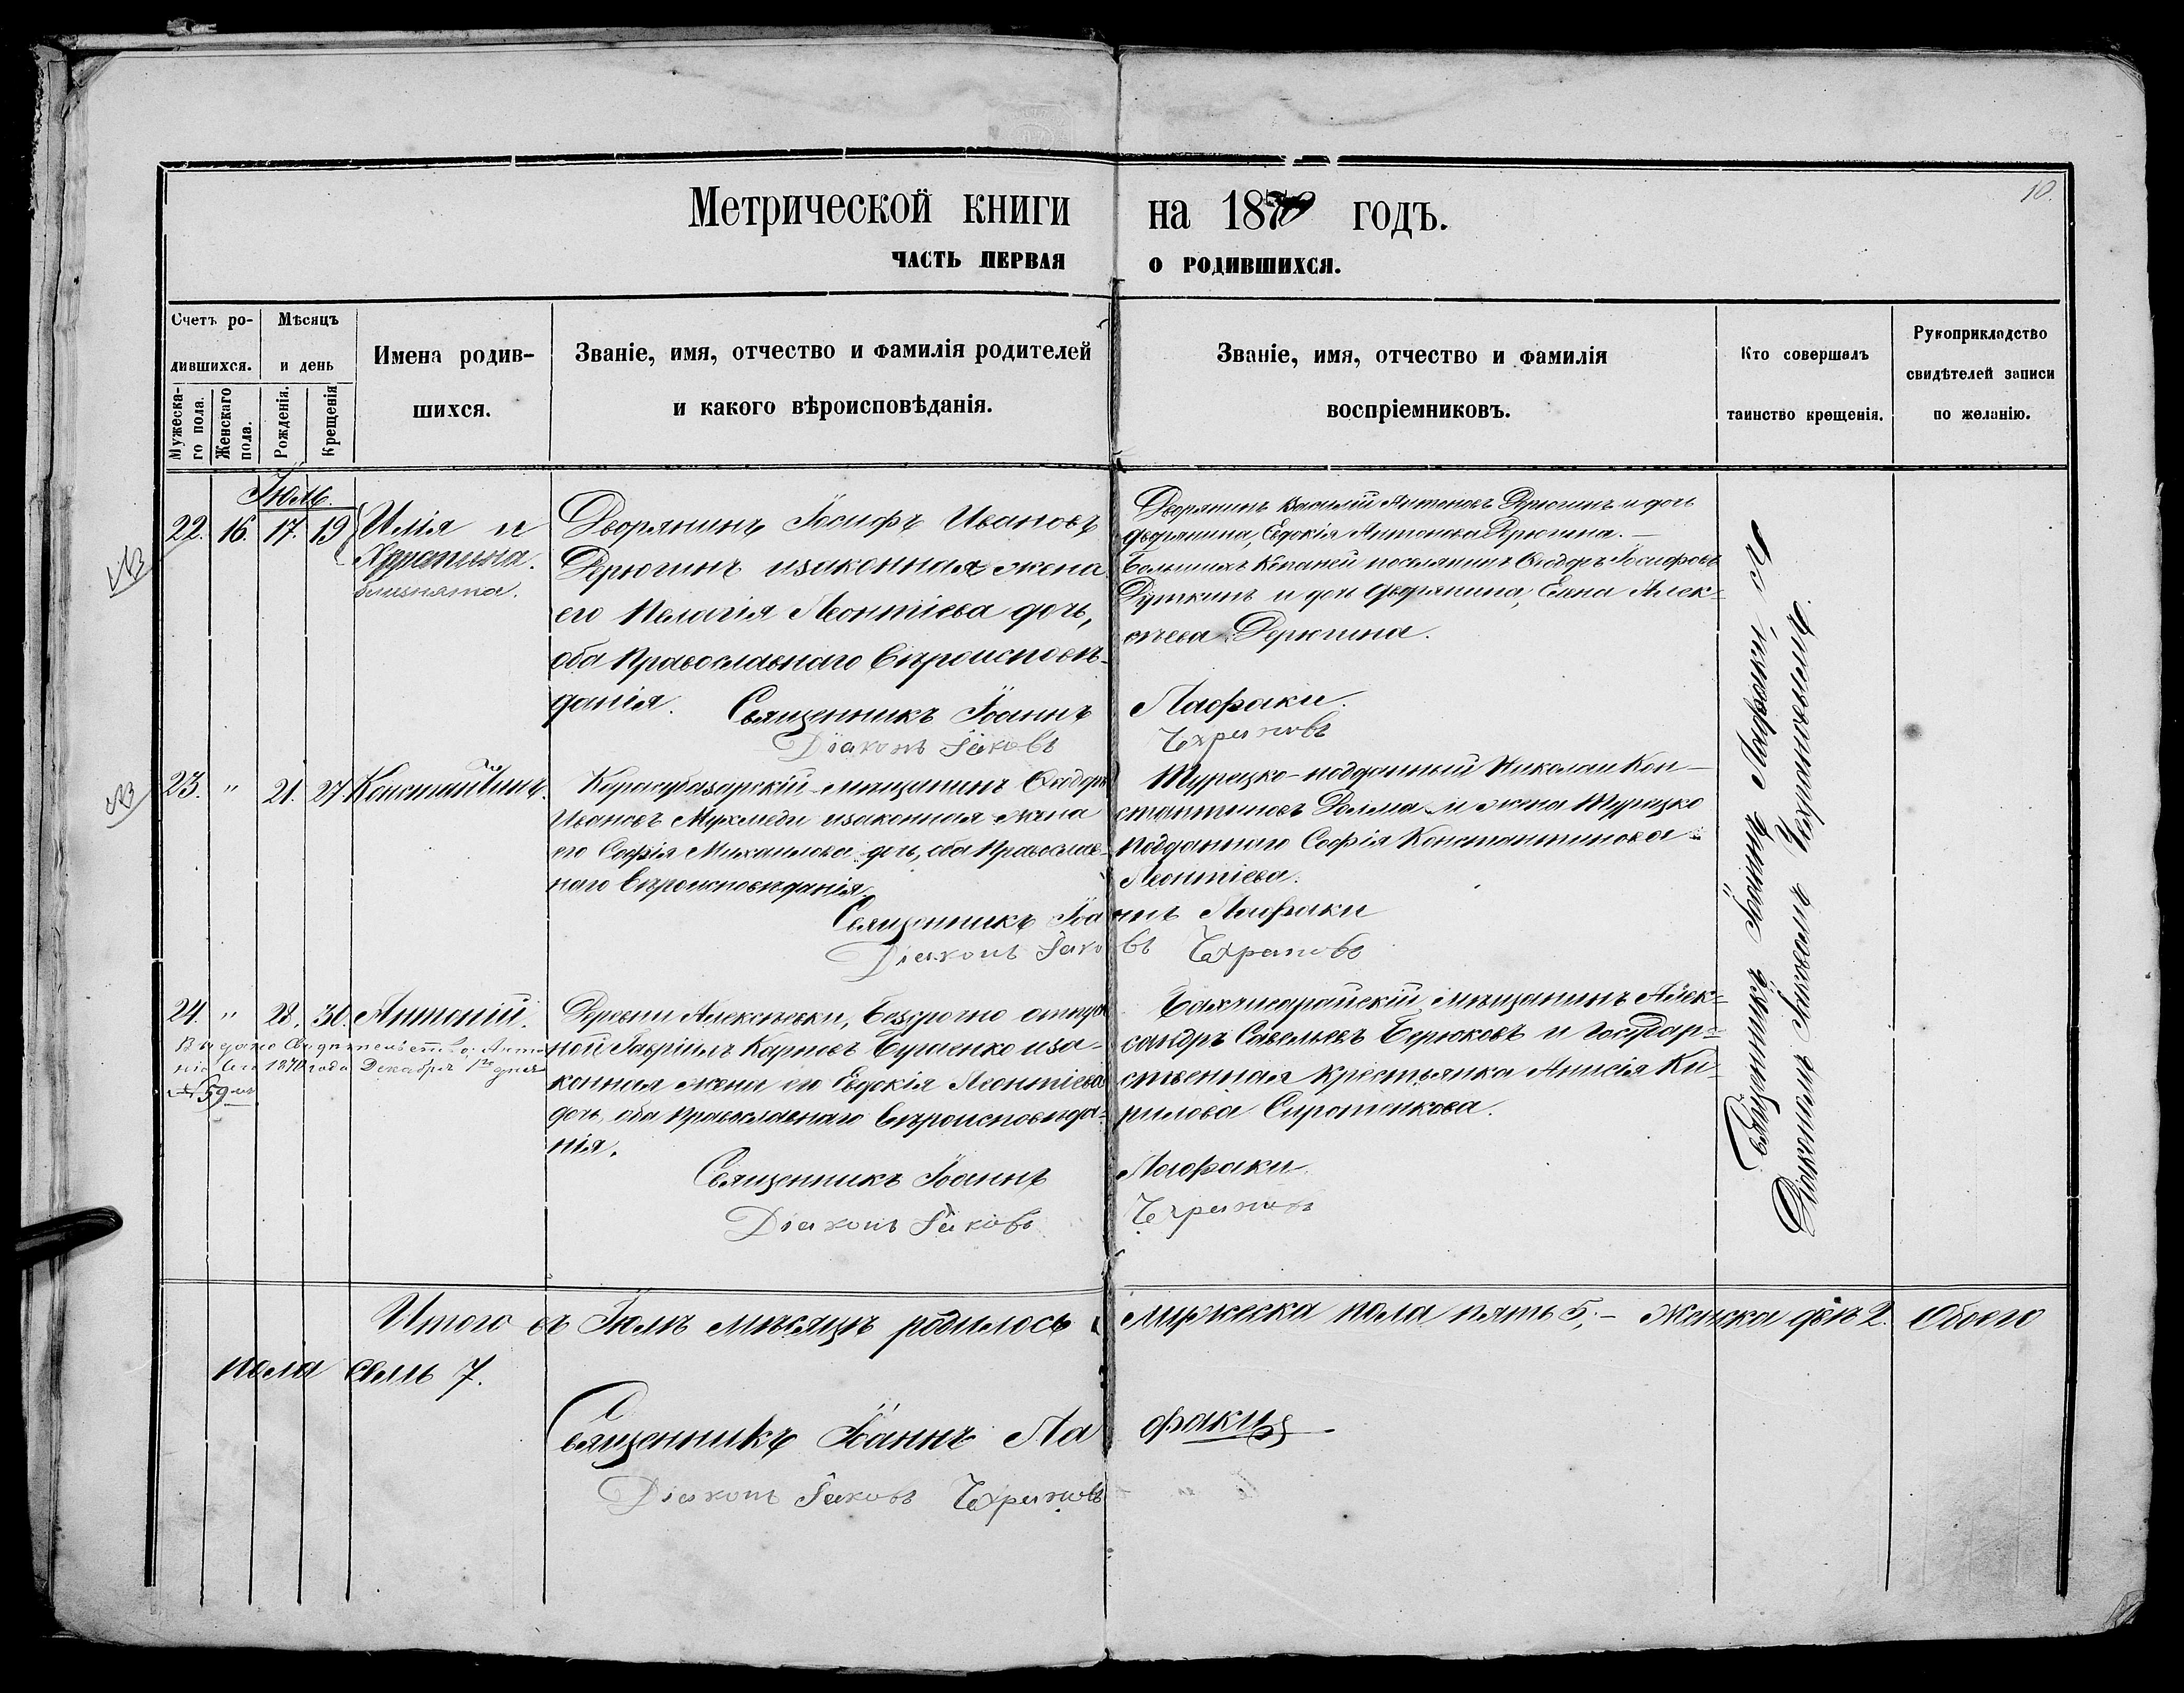 10.
Метрической книги на 1870 годъ.
ЧАСТЬ ПЕРВАЯ О РОДИВШИХСЯ.
Счетъ ро-
дившихся.
Мужеска-
го пола.
Женскаго
пола.
Мѣсяцъ
и день
Рожденія.
Крещенія
Имена родив-
шихся.
Званіе, имя, отчество и фамилія родителей
и какого вѣроисповѣданія.
Званіе, имя, отчество и фамилія
воспріемниковъ.
Кто совершалъ
таинство крещенія.
Рукоприкладство
свидѣтелей записи
по желанію.
Іюль.
22. 16. 17. 19
Илія и
близнята.
Дворянинъ Іосифъ Ивановъ
Дерюгинъ изаконная жена
его Пелагія Леонтіева дочь,
оба Православнаго Вѣроисповѣ-
данія.
Священникъ Іоаннъ Лафаки.
Діаконъ Іаковъ
Дворянинъ Василій Антоновъ Дерюгинъ и дочь
дворянина, Евдокія Антонова Дерюгина.—
Большихъ Копаней поселянинъ Ѳеодоръ Іосифовъ
и дочь дворянина, Елена Алек-
сѣева Дерюгина.
NB
23. " 21. 27. Константинъ.
Карасубазарскій мѣщанинъ Ѳеодоръ
Ивановъ изаконная жена
его Софія Михаилова дочь, оба Православ-
наго Вѣроисповѣданія
Священникъ Іоаннъ Лафаки
Діаконъ Іаковъ
Турецко-подданный Николай Кон-
стантиновъ и жена Турецко
подданнаго Софія Константинова
Леонтіева.
NB
24. " 28. 30. Антоній.
Выдано Свидѣтельство: Анто-
нію сего 1870 года Декабря 1го дня
№ 59мъ
Деревни Алексѣевки, безсрочно отпуск
ной Гавріилъ Карповъ иза-
конная жена его Евдокія Леонтіева
дочь, оба Православнаго Вѣроисповѣда-
нія.
Священникъ Іоаннъ Лафаки
Діаконъ Іаковъ
Бахчисарайскій мѣщанинъ Алек-
сандръ Савельевъ Бирюковъ и Государ-
ственная крестьянка Анисія Ки-
рилова Сиротенкова.
Священникъ Іоаннъ Лафаки, съ
Діакономъ Іаковомъ
Итого въ Іюлѣ мѣсяцѣ родилось мужеска пола пять 5;— Женска двѣ 2. Обоего
пола семь 7.
Священникъ Іоаннъ Лафаки
Діаконъ Іаковъ